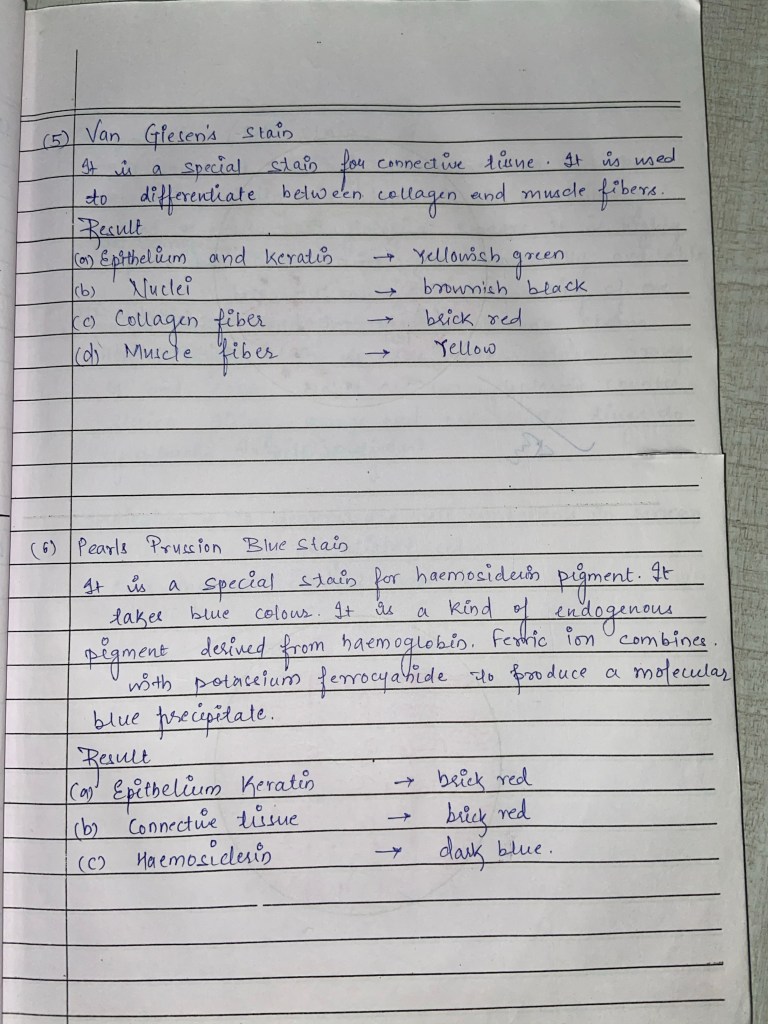 (5) Van Giesen's stain
It is a special stain for connective tissue. It is used
to differentiate between collagen and muscle fibers.
Result
(a) Epithelium and keratin → Yellowish green
(b) Nuclei → brownish black
(c) Collagen fiber → brick red
(d) Muscle fiber → Yellow
(6) Pearls Prussion Blue stain
It is a special stain for haemosiderin pigment. It
takes blue colour. It is a kind of endogenous
pigment derived from haemoglobin. Ferric ion combines.
with potassium ferrocyanide to produce a molecular
blue precipitate.
Result
(a) Epithelium Keratin → brick red
(b) Connective tissue → brick red
(c) Haemosiderin → dark blue.